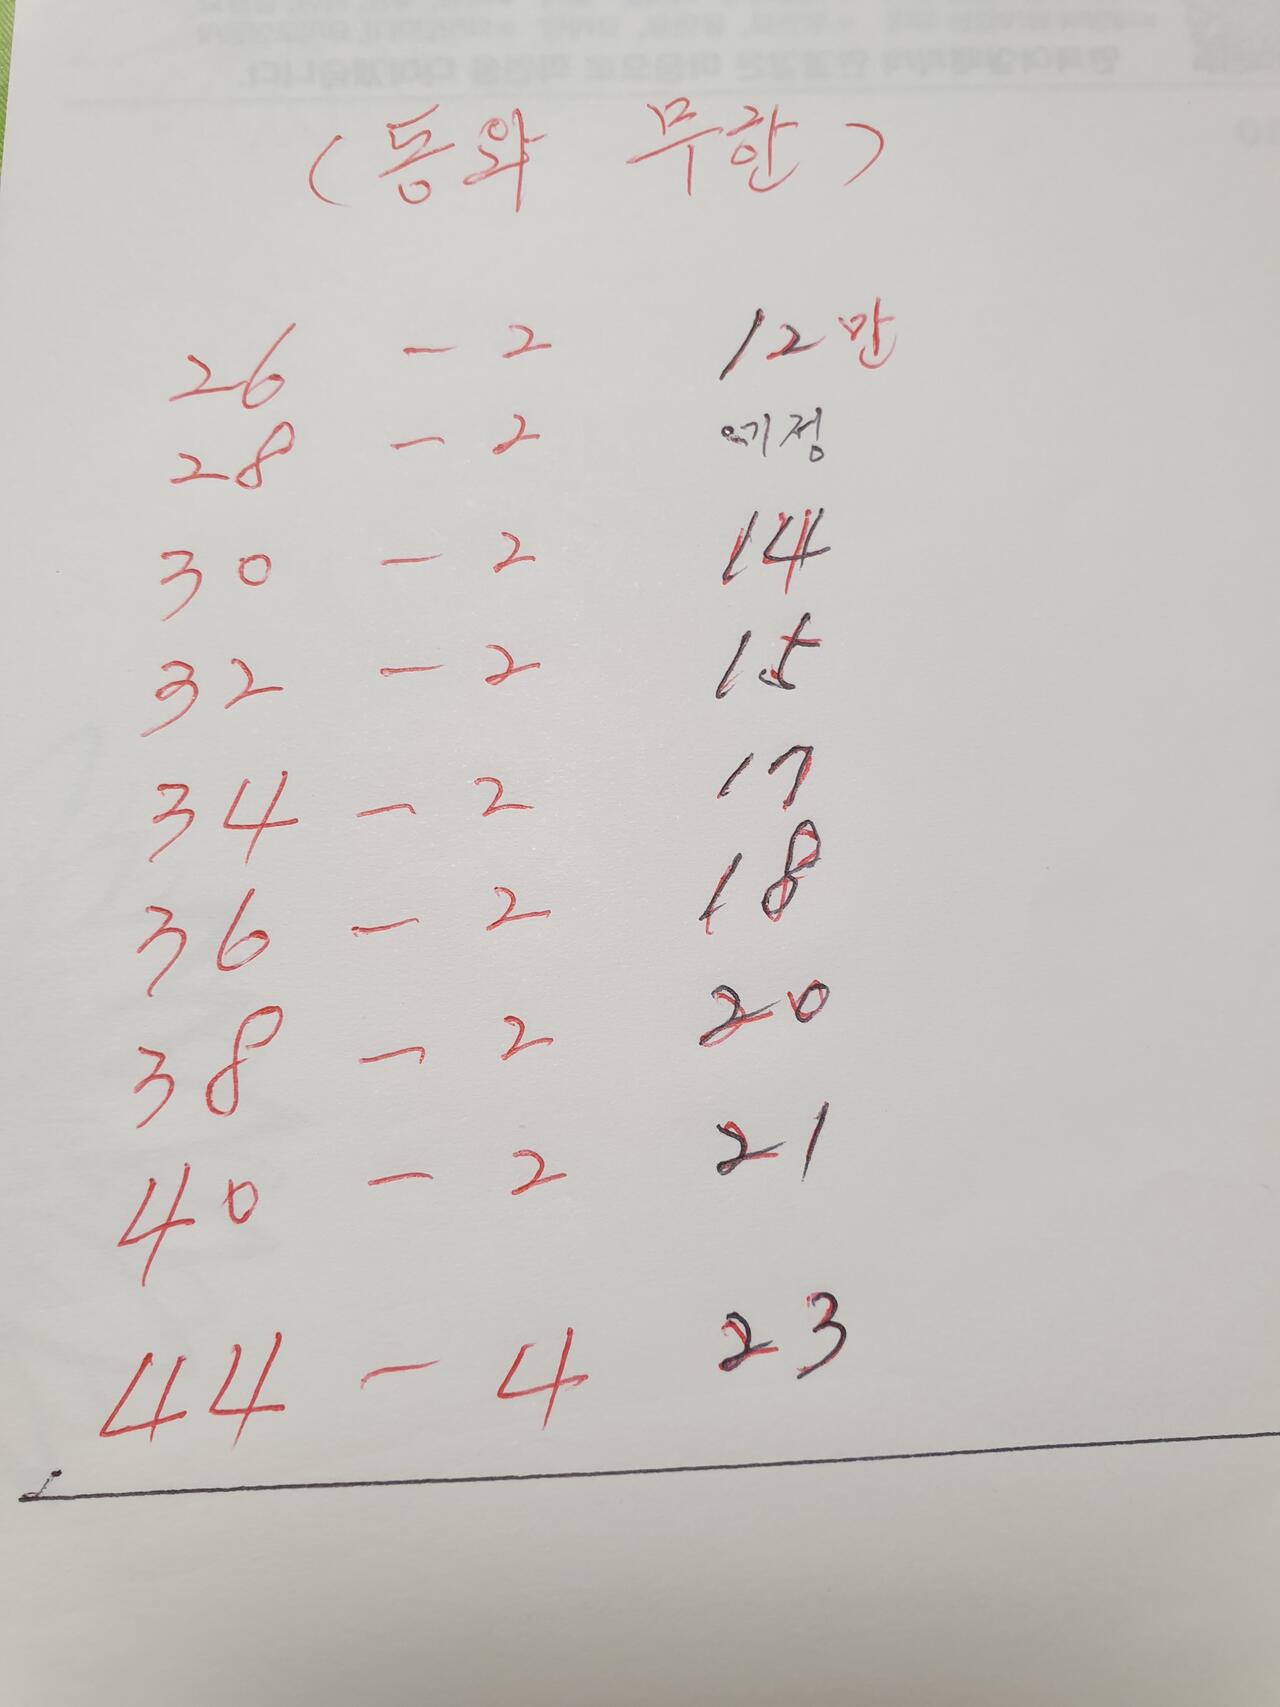 (동와 무한)
26 - 2 12만
28 - 2 예정
30 - 2 14
32 - 2 15
34 - 2 17
36 - 2 18
38 - 2 20
40 - 2 21
44 - 4 23